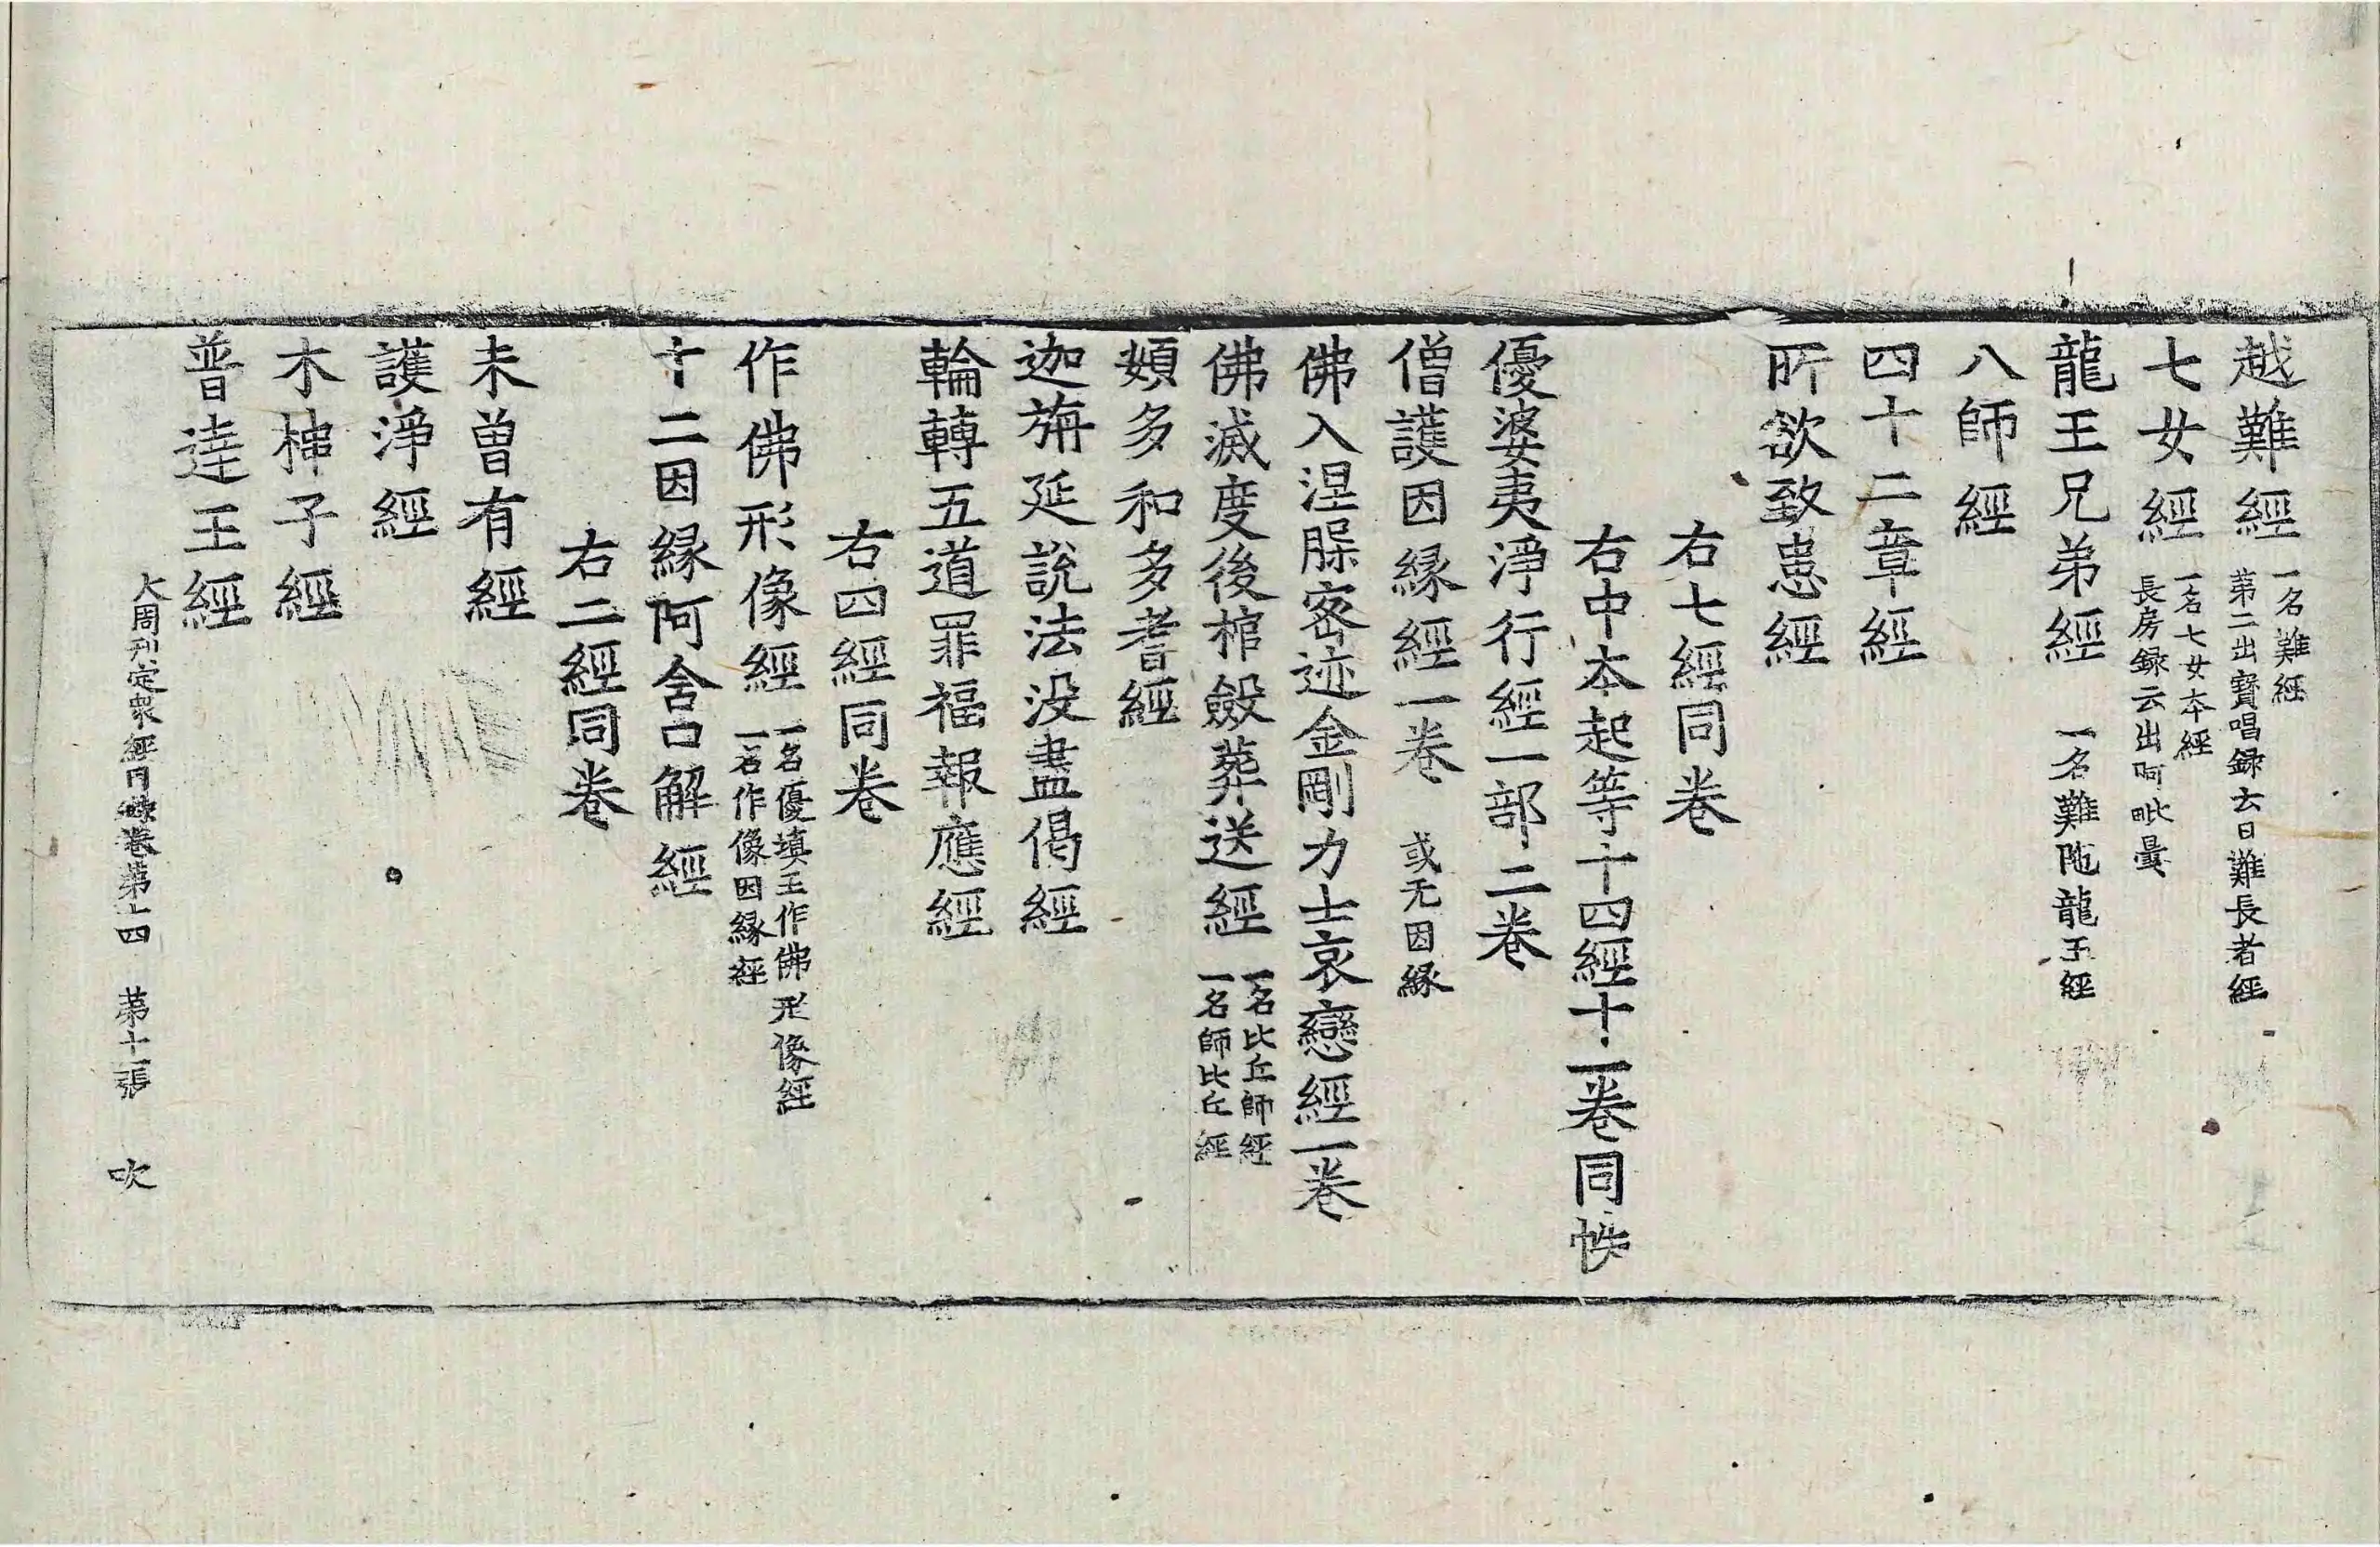 越難經 一名難經
第二出寶唱録云日難長者經
七女經 一名七女本經
長房録云出阿毗曇
龍王兄弟經 一名難陁龍王經
八師經
四十二章經
所欲致患經
右七經同卷
右中本起等十四經十一卷同帙
優婆夷淨行經一部二卷
僧護因縁經一卷 或无因縁
佛入涅槃密迹金剛力士哀戀經一卷
佛滅度後棺斂葬送經 一名比丘師經
一名師比丘經
頞多和多耆經
迦旃延說法没盡偈經
輪轉五道罪福報應經
右四經同卷
作佛形像經 一名優填王作佛形像經
一名作像因縁經
十二因縁阿含口解經
右二經同卷
未曾有經
護淨經
木槵子經
普達王經
大周刊定衆經目録卷第十四 第十一張 吹